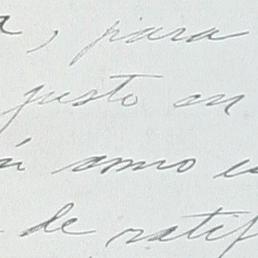 , para
justo en
como
de ratif